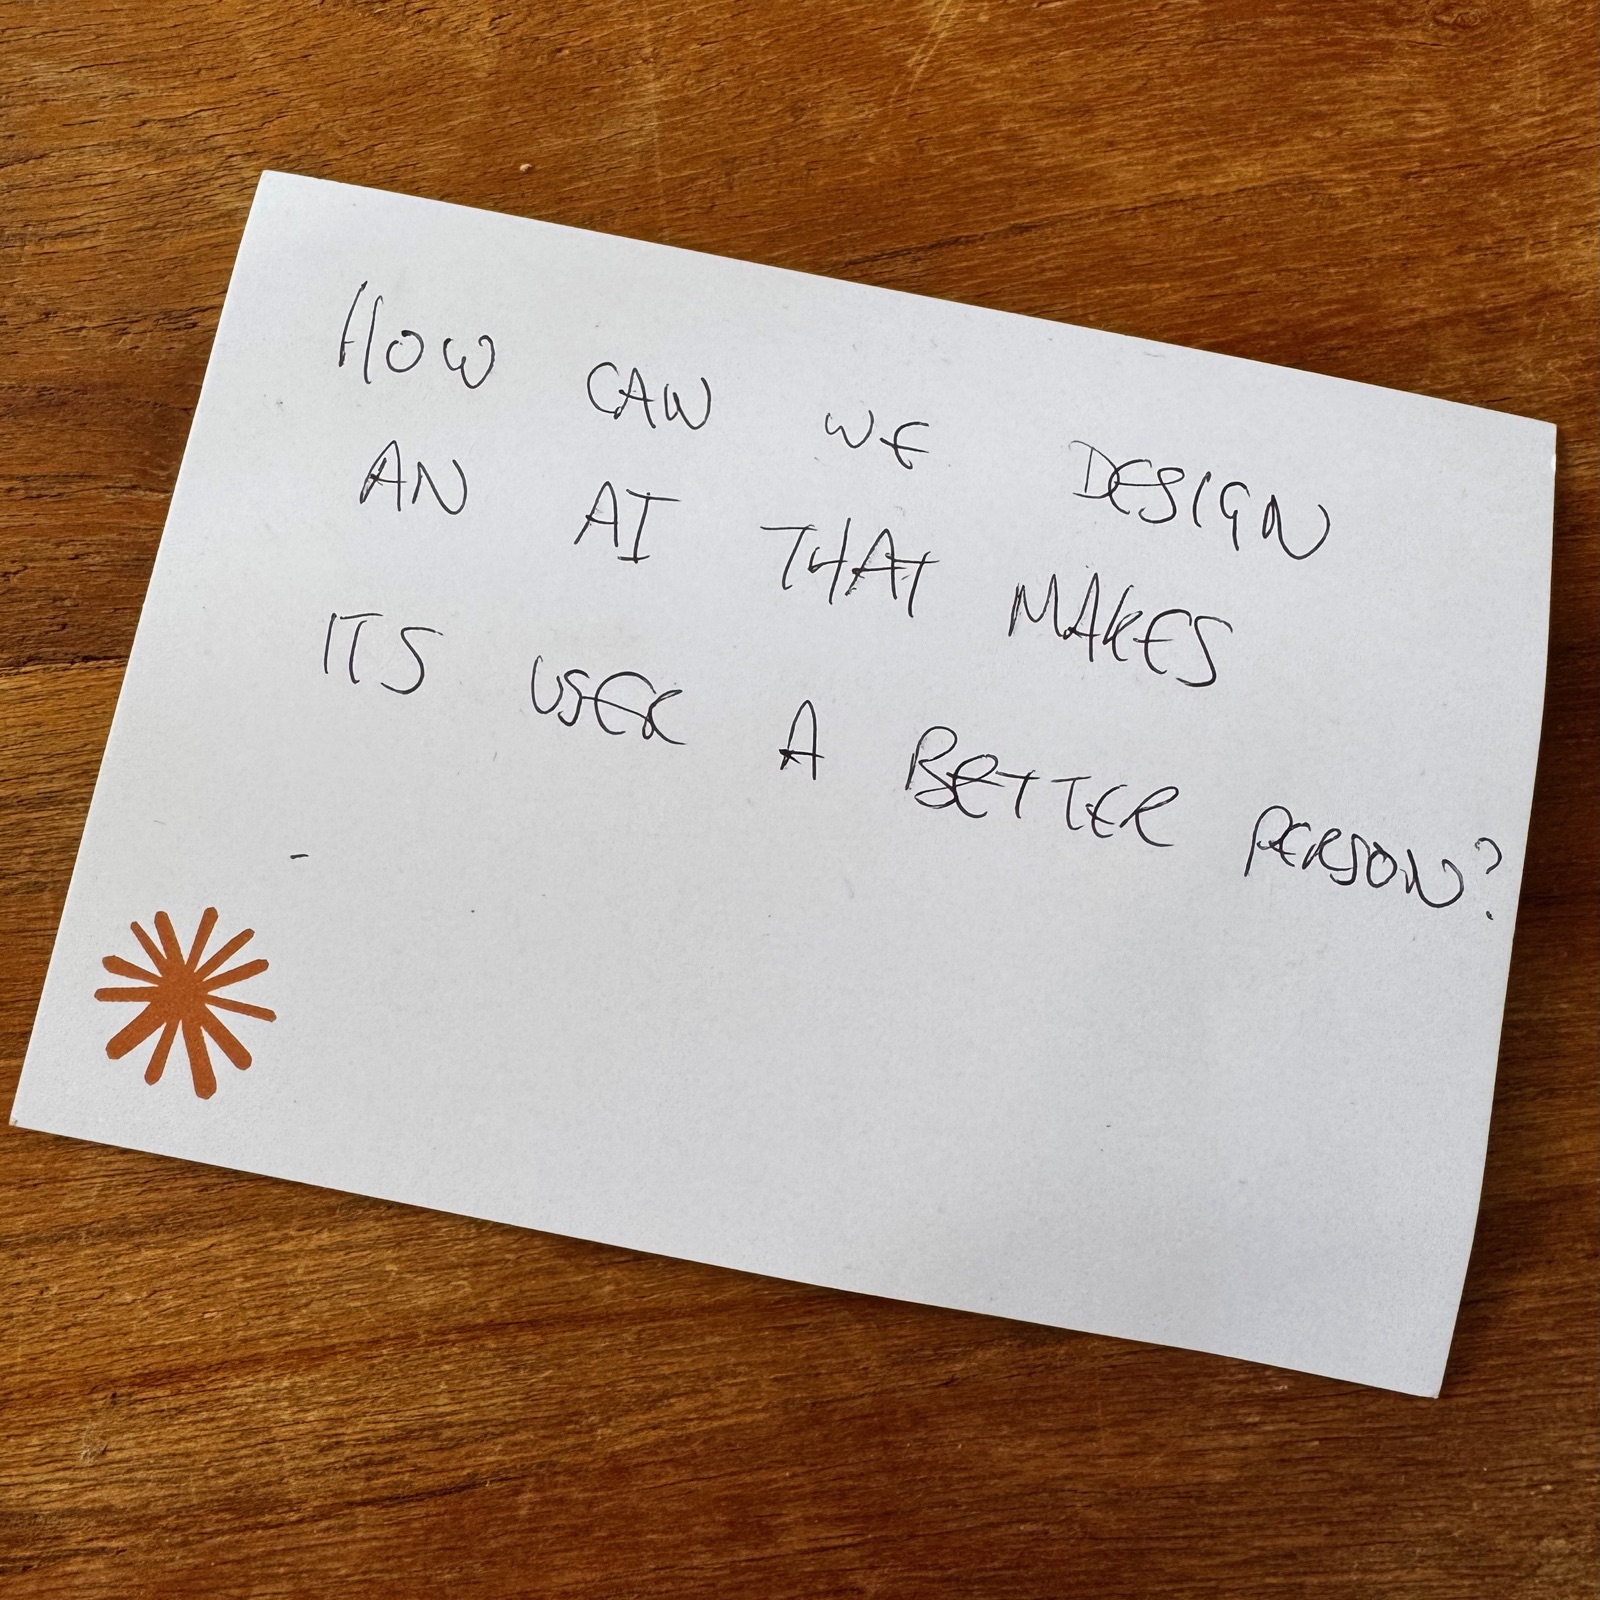 HOW CAN WE DESIGN
AN AI THAT MAKES
ITS USER A BETTER PERSON?